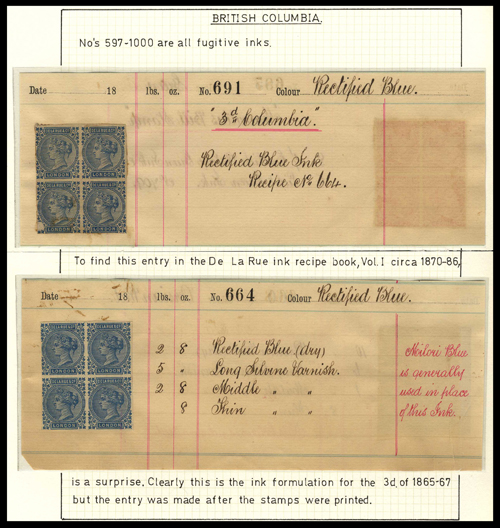 BRITISH COLUMBIA.
No's 597-1000 are all fugitive inks.
Date 18 lbs. oz. No. 691 Colour Rectified Blue.
"3d Columbia".
Rectified Blue Ink
Recipe No 664.
DE LA RUE & CO
LONDON
To find this entry in the De La Rue ink recipe book, Vol. I circa 1870-86,
Date 18 lbs. oz. No. 664 Colour Rectified Blue.
2 8 Rectified Blue (dry)
5 " Long Silvine Varnish.
2 8 Middle " "
8 Thin " "
Meilori Blue
is generally
used in place
of this Ink.
DE LA RUE & CO
LONDON
is a surprise. Clearly this is the ink formulation for the 3d. of 1865-67
but the entry was made after the stamps were printed.